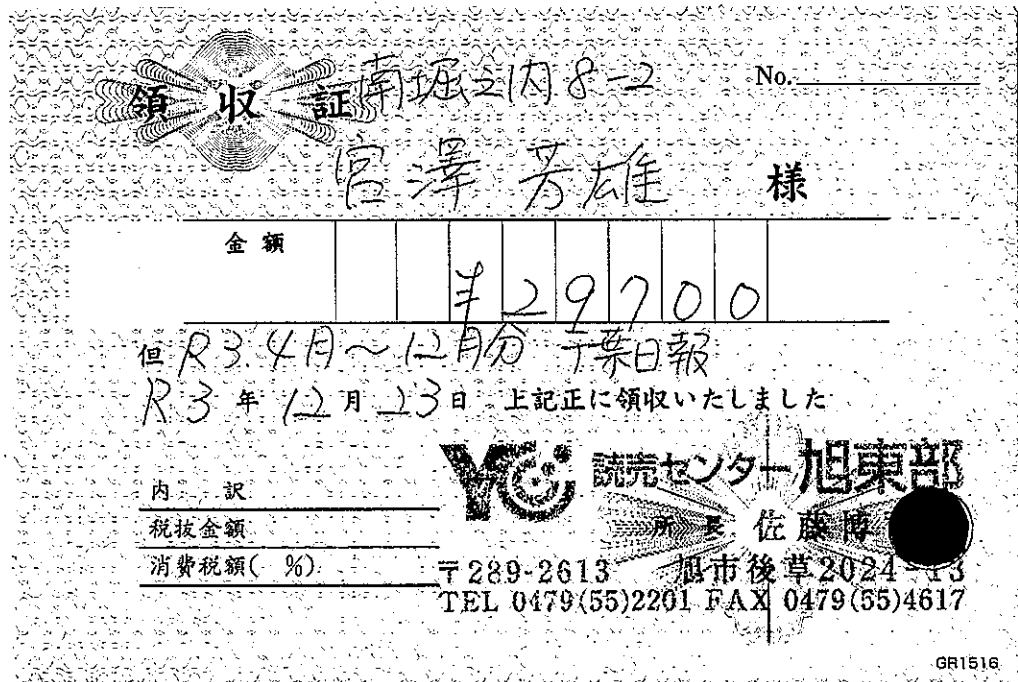 領収証 南堀之内8-2 No.
宮澤 芳雄 様
金額 ¥29700
但 R3.4月〜12月分 千葉日報
R3年12月23日 上記正に領収いたしました
YC 読売センター旭東部
内訳
所長 佐藤博
税抜金額
消費税額( %)
〒289-2613 旭市後草2024-13
TEL 0479(55)2201 FAX 0479(55)4617
GR1516